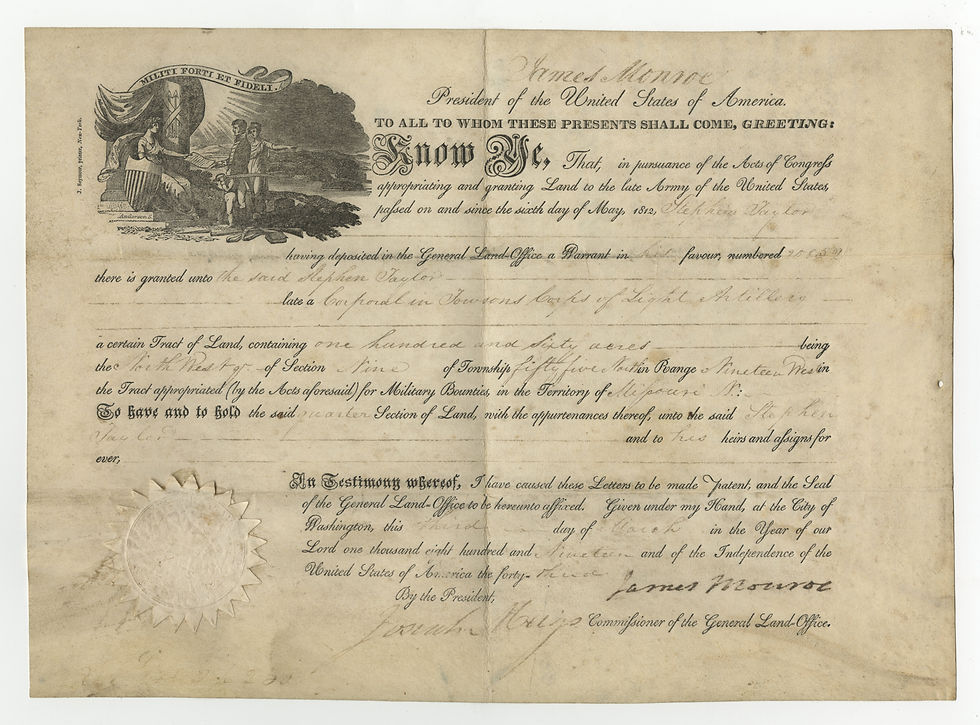 MILITI FORTI ET FIDELI.
J. Seymour, printer, New-York.
Anderson S.
James Monroe
President of the United States of America.
TO ALL TO WHOM THESE PRESENTS SHALL COME, GREETING:
Know Ye, That, in pursuance of the Acts of Congress
appropriating and granting Land to the late Army of the United States,
passed on and since the sixth day of May, 1812, Stephen Taylor
having deposited in the General Land-Office a Warrant in his favour, numbered
there is granted unto the said Stephen Taylor
late a Corporal in Towsons Corps of Light Artillery
a certain Tract of Land, containing one hundred and sixty acres being
the North West qr of Section Nine of Township fifty five North in Range Nineteen West in
the Tract appropriated (by the Acts aforesaid) for Military Bounties, in the Territory of Missouri
To have and to hold the said quarter Section of Land, with the appurtenances thereof, unto the said Stephen
Taylor and to his heirs and assigns for
ever,
In Testimony whereof, I have caused these Letters to be made Patent, and the Seal
of the General Land-Office to be hereunto affixed. Given under my Hand, at the City of
Washington, this third day of March in the Year of our
Lord one thousand eight hundred and Nineteen and of the Independence of the
United States of America the forty-third
James Monroe
By the President,
Josiah Meigs Commissioner of the General Land-Office.